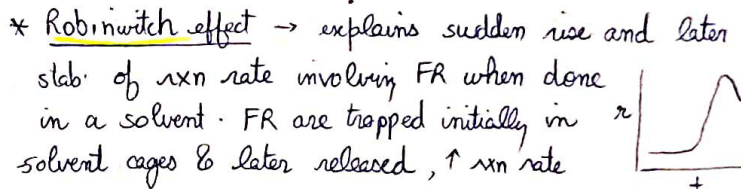 * Robinwitch effect → explains sudden rise and later
stab. of rxn rate involving FR when done
in a solvent. FR are trapped initially in
solvent cages & later released, ↑ rxn rate
r
t